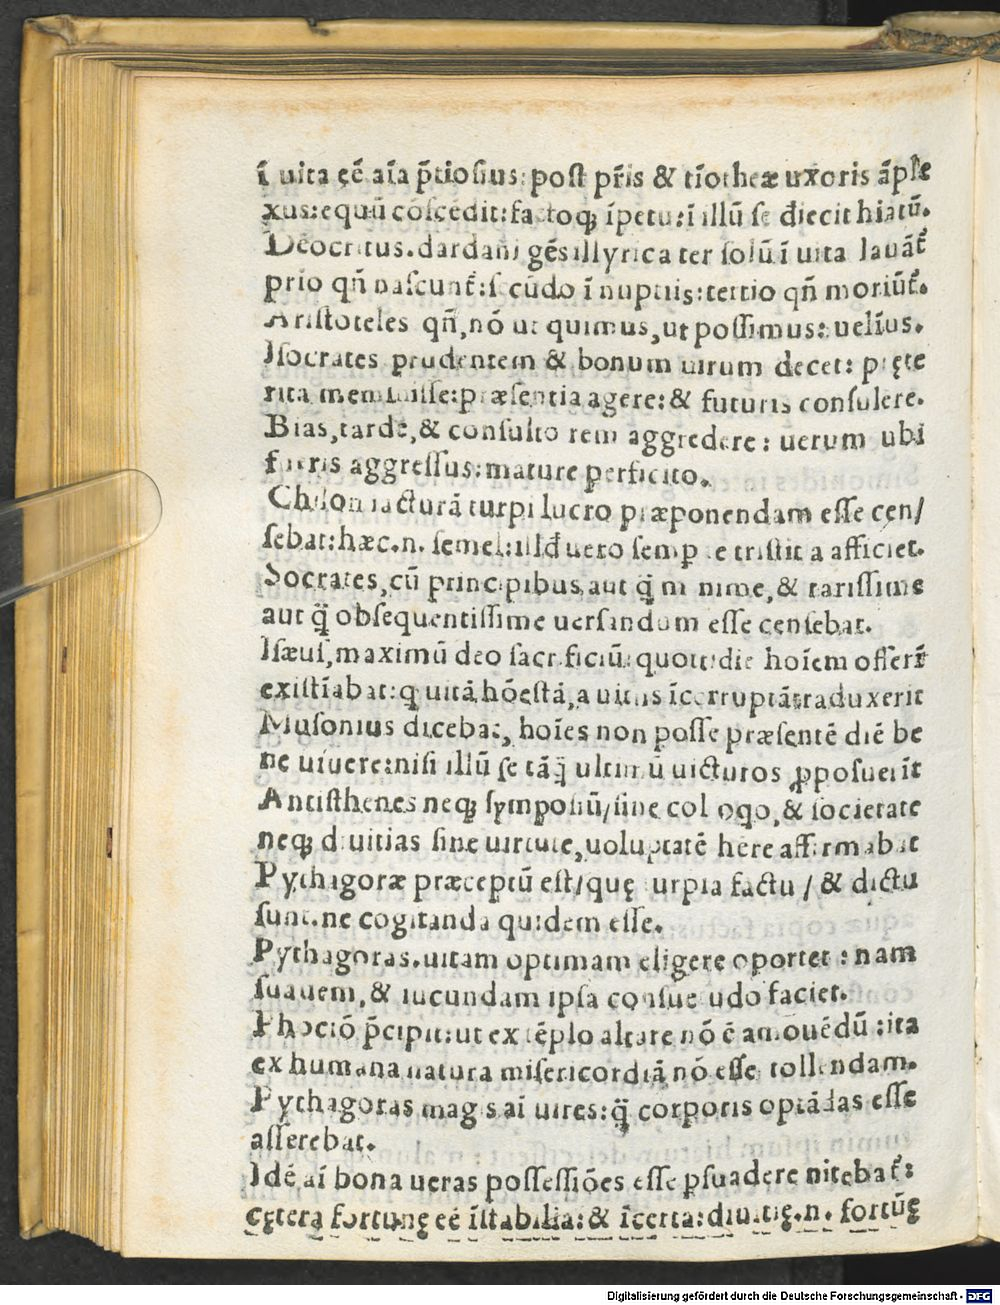 ī uita eē aīa p̄tiosius: post pr̄is & tīotheæ uxoris āple
xus: equū cōscēdit: factoq; īpetu: ī illū se điecit hiatū.
Dēocritus. dardani gēs illyrica ter solū ī uita lauāt̄
prio qn̄ nascunt̄: scūdo ī nuptiis: tertio qn̄ moriūt̄.
Aristoteles qn̄, nō ut quimus, ut possimus: uelīus.
Isocrates prudentem & bonum uirum decet: pręte
rita meminisse: præsentia agere: & futuris consulere.
Bias, tarde, & consulto rem aggredere: uerum ubi
fueris aggressus: mature perficito.
Chilon iacturā turpi lucro præponendam esse cen/
sebat: hæc .n. semel: illđ uero semper te tristitia afficiet.
Socrates, cū principibus, aut q̄ minime, & rarissime
aut q̄ obsequentissime uersandum esse censebat.
Isæus, maximū deo sacrificiū: quottidie hoīem offerr̄
existīabat: q uitā hōestā, a uitiis īcorruptā traduxerit
Musonius dicebat, hoīes non posse præsentē diē be
ne uiuere: nisi illū se tāq̄ ultimū uicturos ꝓposuerīt
Antisthenes neq; symposiū / sine colloqo, & societate
neq; diuitias sine uirtute, uoluptatē hēre affirmabat
Pythagoræ præceptū est / quę turpia factu / & dictu
sunt. ne cogitanda quidem esse.
Pythagoras. uitam optimam eligere oportet: nam
suauem, & iucundam ipsa consuetudo faciet.
Phociō p̄cipit: ut ex tēplo altare nō ē amouēdū: ita
ex humana natura misericordiā nō esse tollendam.
Pythagoras magis aī uires: q̄ corporis optādas esse
asserebat.
Idē aī bona ueras possessiōes esse psuadere nitebat̄:
cętera fortunę eē īstabilia: & īcerta: diuitię .n. fortūę
Digitalisierung gefördert durch die Deutsche Forschungsgemeinschaft - DFG